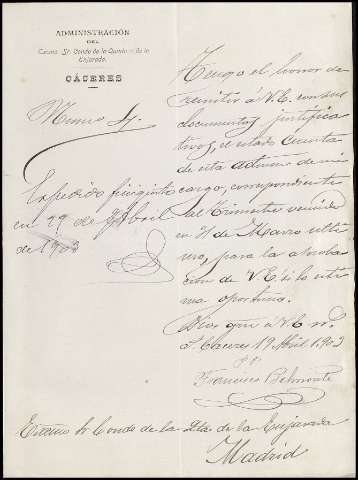 ADMINISTRACIÓN
DEL
Excmo. Sr. Conde de la Quinta de la
Enjarada
CÁCERES
Tengo el honor de
remitir á V.E. con sus
documentos justifica
tivos, el estado cuenta
de esta admon de mi
cargo, correspondiente
al trimestre vencido
en 31 de Marzo últi
mo, para la aproba
cion de V.E. si lo esti
ma oportuno.
Dios gue á V.E. m. a.
Cáceres 19 Abril 1903
p.p.
Francisco Belmonte
Expedido finiquito
en 29 de Abril
de 1903
Excmo Sr Conde de la Qta de la Enjarada
Madrid